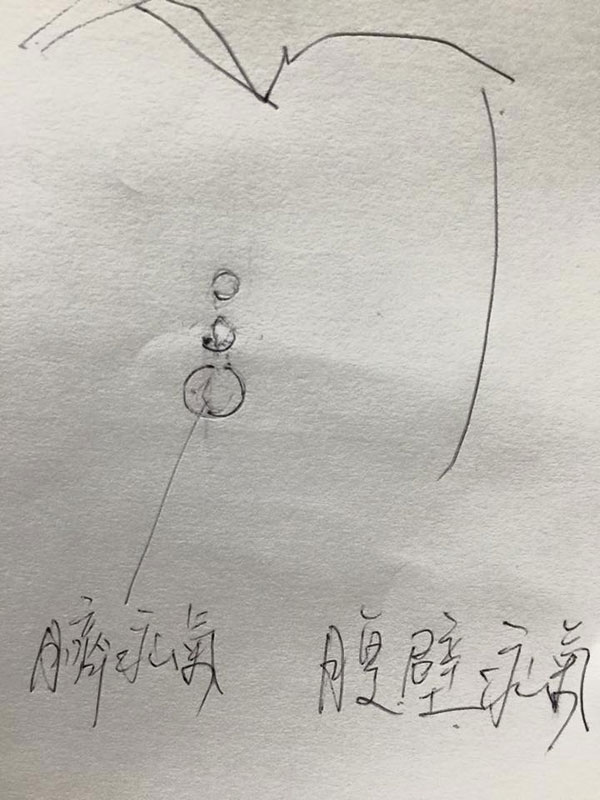 臍疝氣
腹壁疝氣